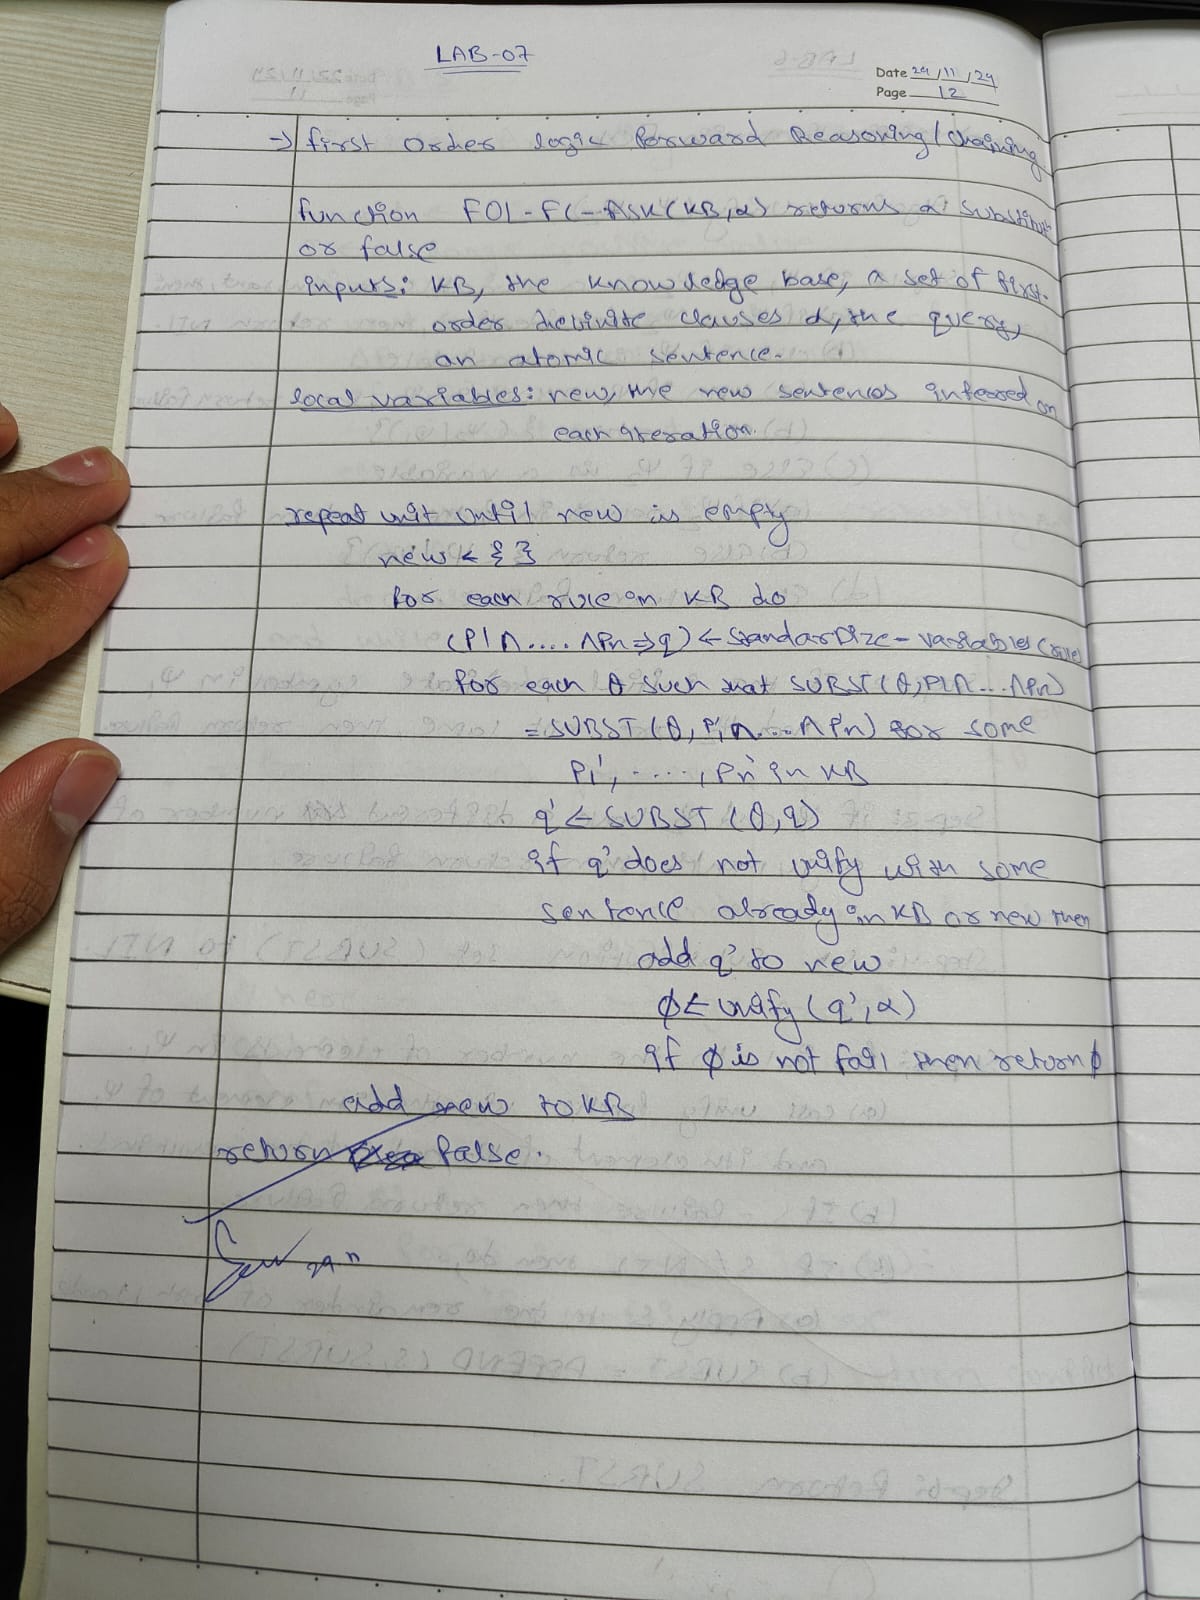 LAB-07
Date 29/11/24
Page 12
→ first Order logic forward Reasoning/Chaining
function FOL-FC-ASK(KB,α) returns a substitut
or false
inputs: KB, the knowledge base, a set of first-
order definite clauses α, the query,
an atomic sentence.
local variables: new, the new sentences inferred on
each iteration.
repeat unit until new is empty
new ← { }
for each rule in KB do
(P1∧....∧Pn⇒q) ← StandarDize-variables(rule)
for each θ such that SUBST(θ,P1∧...∧Pn)
=SUBST(θ,P'1∧...∧P'n) for some
P1',....,Pn' in KB
q' ← SUBST(θ,q)
if q' does not unify with some
sentence already in KB or new then
add q' to new
ϕ ← unify(q',α)
if ϕ is not fail then return ϕ
add new to KB
return false.